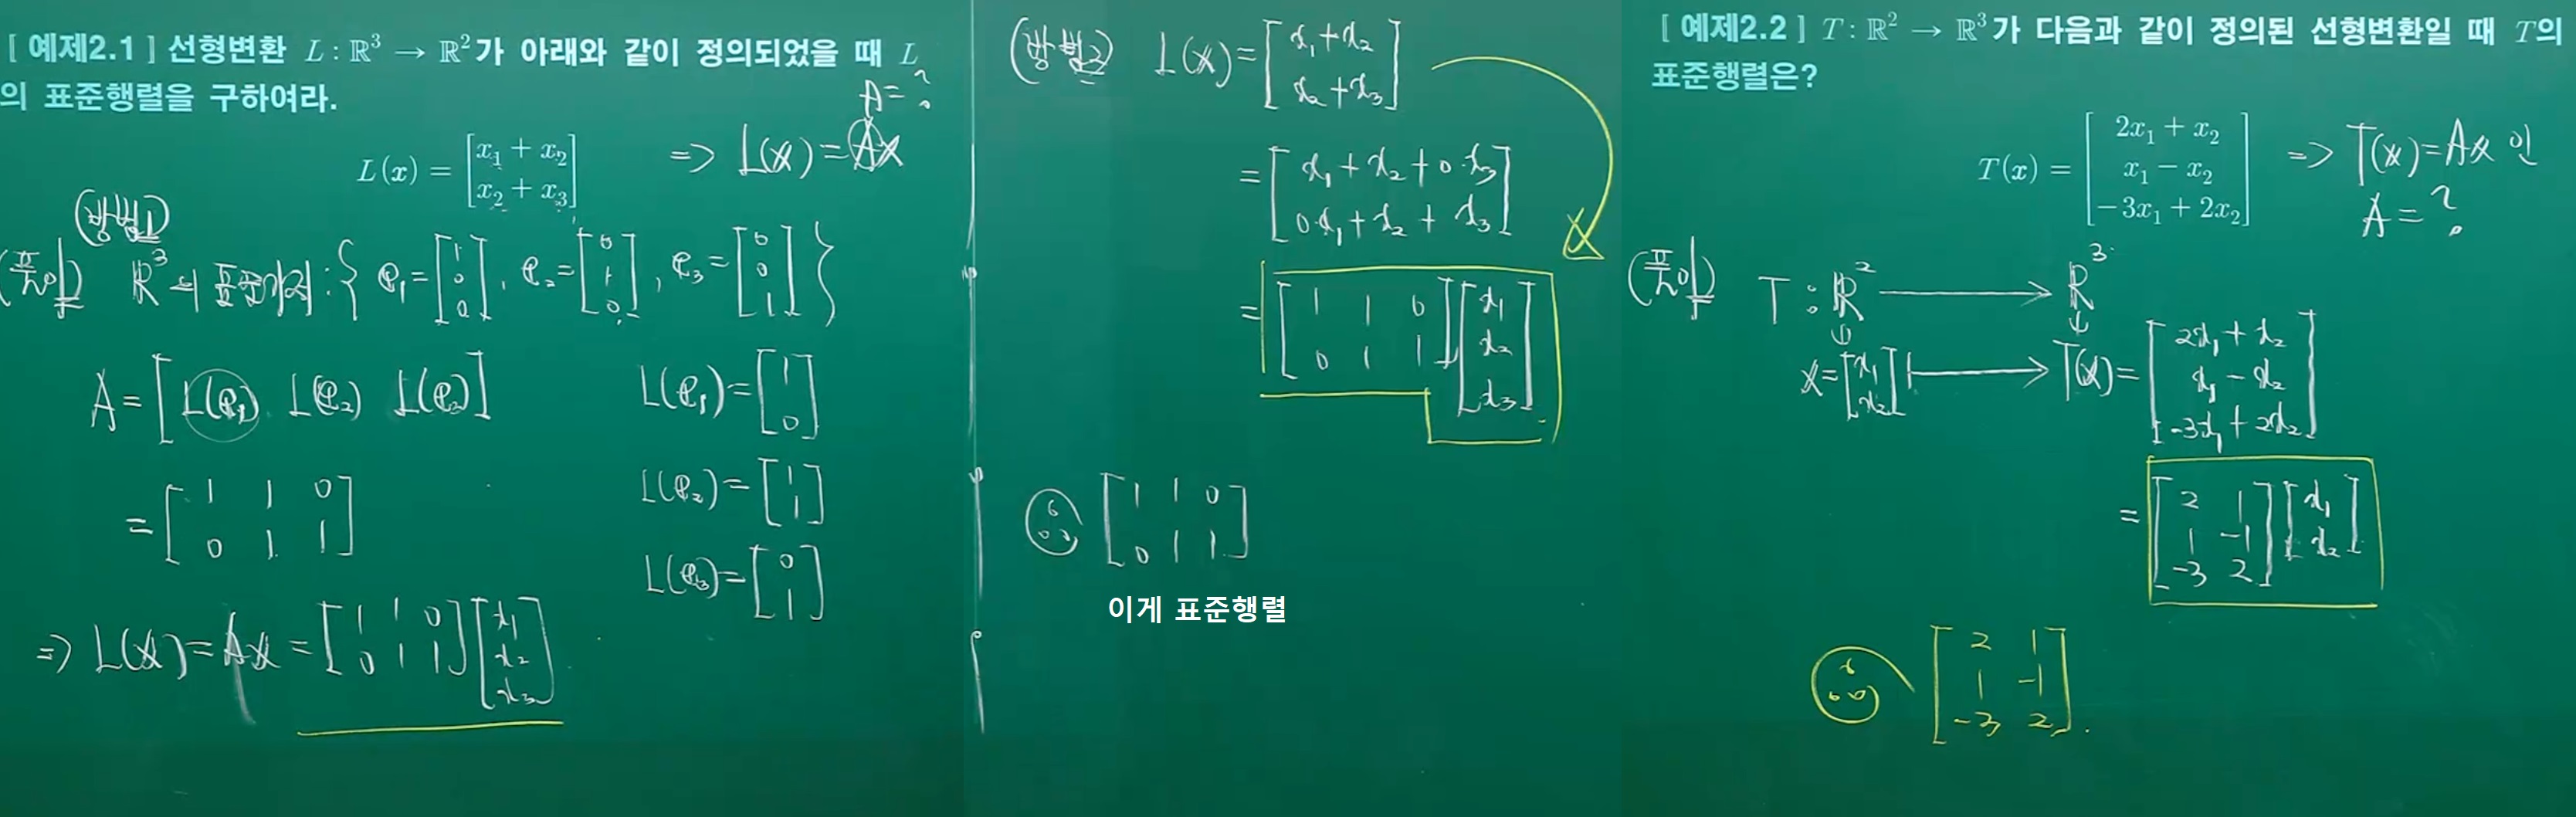 [ 예제2.1 ] 선형변환 L : ℝ³ → ℝ²가 아래와 같이 정의되었을 때 L
의 표준행렬을 구하여라.
A = ?
L(x) = [x₁ + x₂; x₂ + x₃] => L(x) = Ax
(방법1)
(풀이) ℝ³의 표준기저 : { e₁ = [1; 0; 0], e₂ = [0; 1; 0], e₃ = [0; 0; 1] }
A = [L(e₁) L(e₂) L(e₃)]
= [1 1 0; 0 1 1]
L(e₁) = [1; 0]
L(e₂) = [1; 1]
L(e₃) = [0; 1]
=> L(x) = Ax = [1 1 0; 0 1 1] [x₁; x₂; x₃]
(방법2) L(x) = [x₁ + x₂; x₂ + x₃]
= [x₁ + x₂ + 0·x₃; 0·x₁ + x₂ + x₃]
= [1 1 0; 0 1 1] [x₁; x₂; x₃]
[1 1 0; 0 1 1]
이게 표준행렬
[ 예제2.2 ] T : ℝ² → ℝ³가 다음과 같이 정의된 선형변환일 때 T의
표준행렬은?
T(x) = [2x₁ + x₂; x₁ − x₂; −3x₁ + 2x₂] => T(x) = Ax 인
A = ?
(풀이) T : ℝ² → ℝ³
x = [x₁; x₂] ↦ T(x) = [2x₁ + x₂; x₁ − x₂; −3x₁ + 2x₂]
= [2 1; 1 −1; −3 2] [x₁; x₂]
[2 1; 1 −1; −3 2].